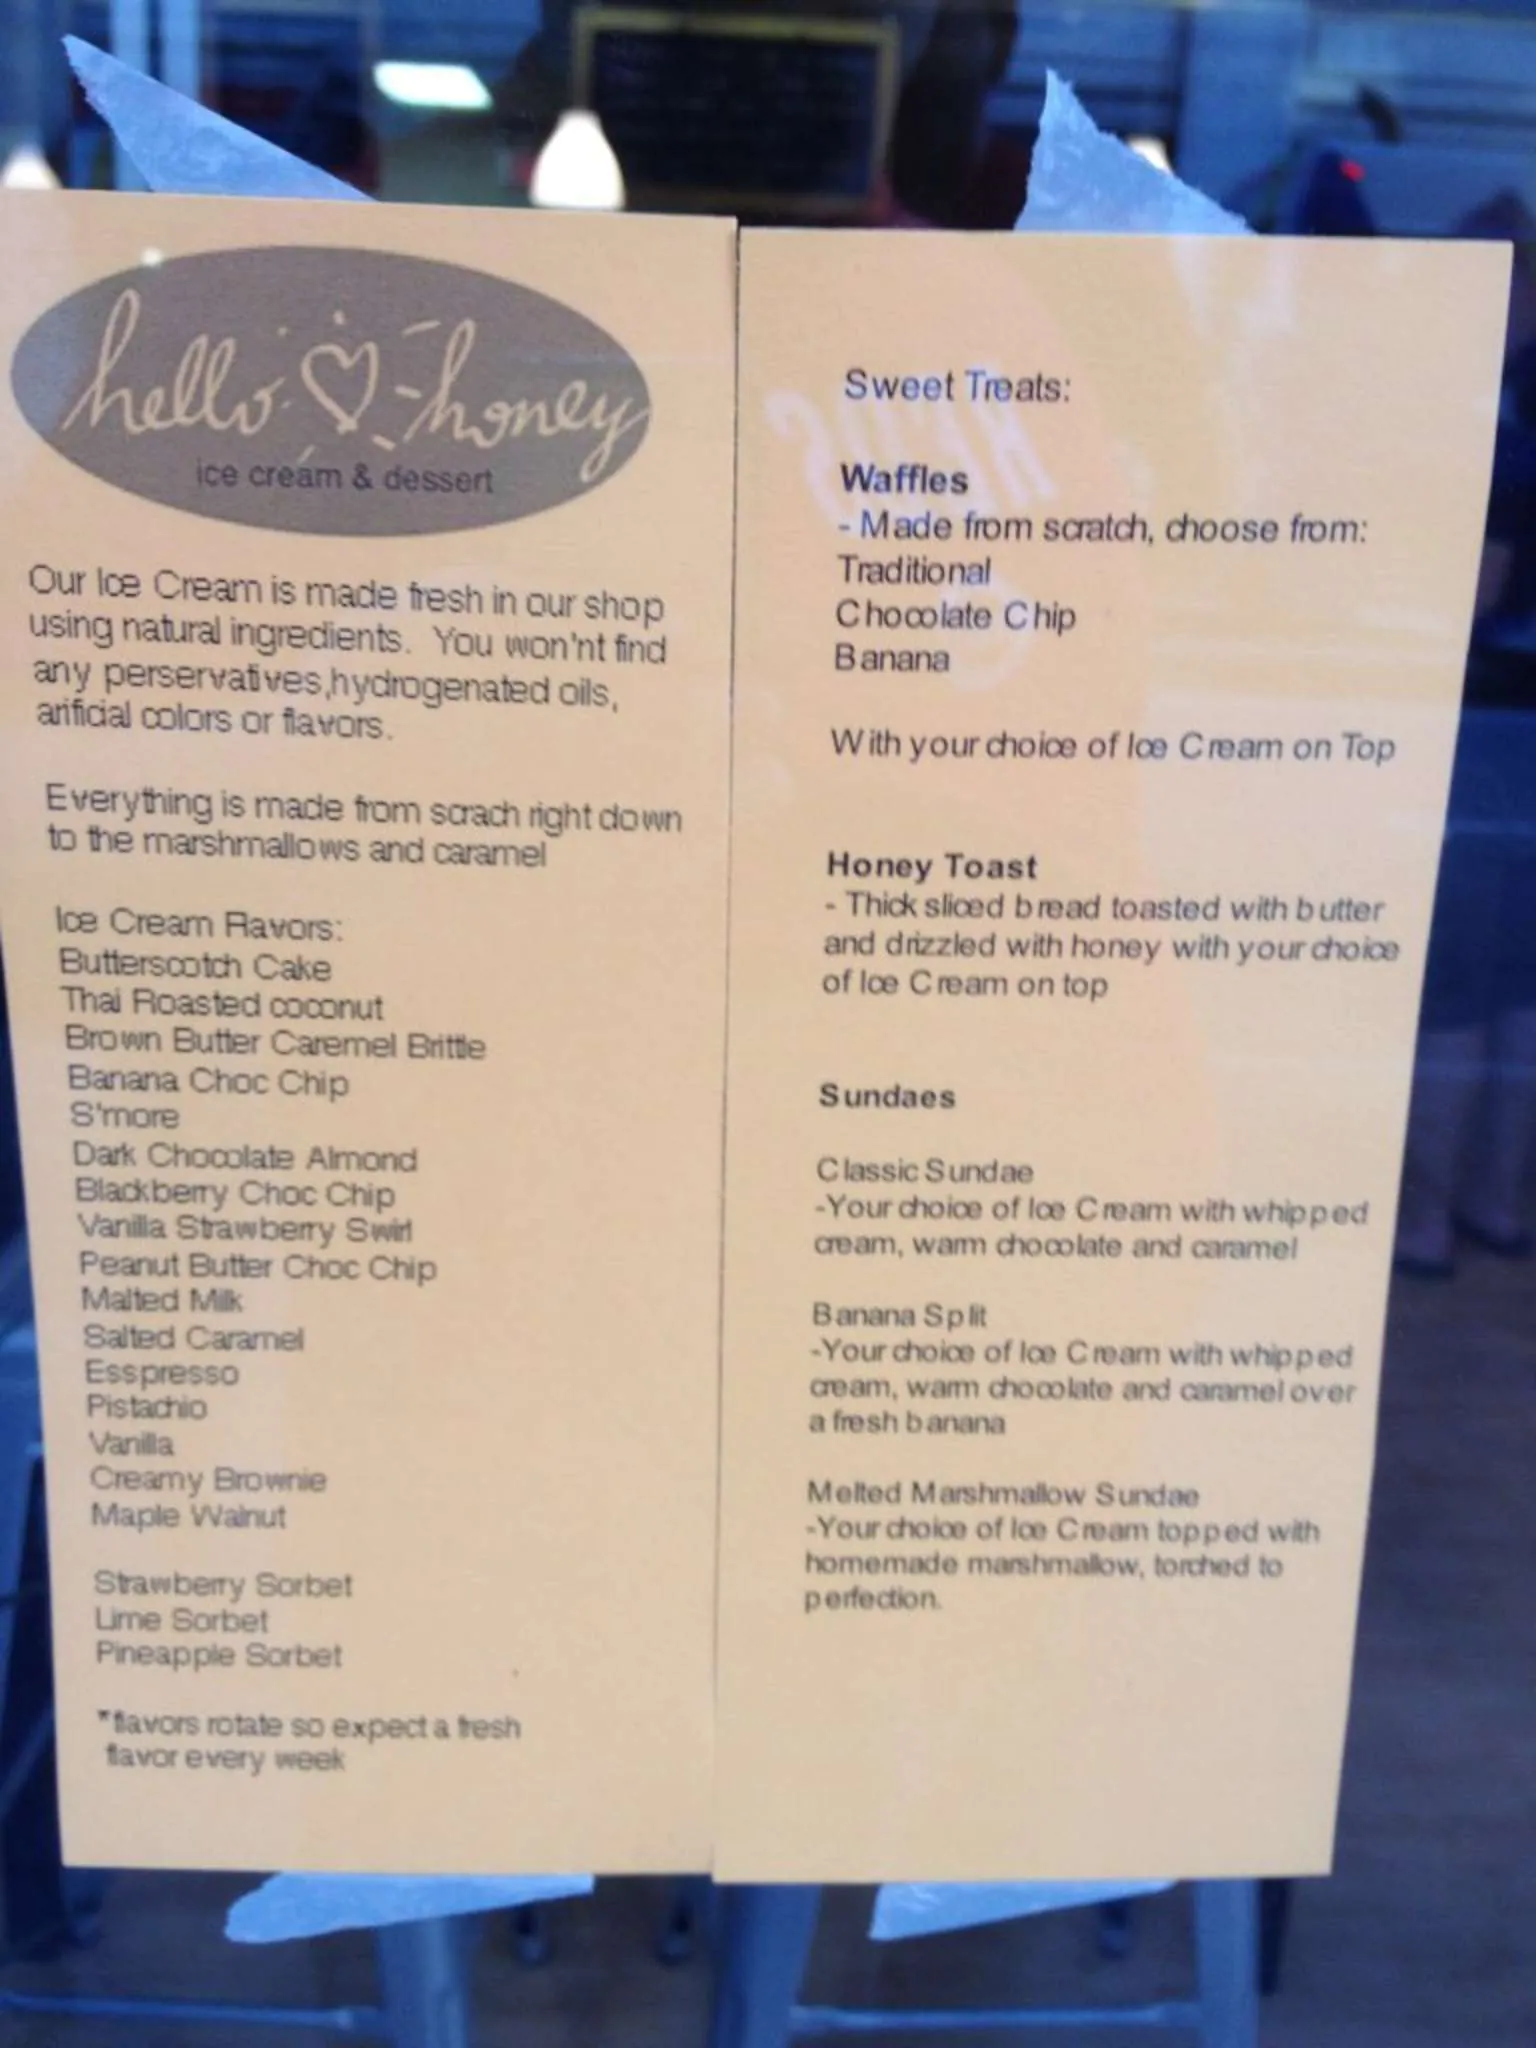 hello honey
ice cream & dessert
Our Ice Cream is made fresh in our shop
using natural ingredients. You won'nt find
any perservatives,hydrogenated oils,
arificial colors or flavors.
Everything is made from scrach right down
to the marshmallows and caramel
Ice Cream Flavors:
Butterscotch Cake
Thai Roasted coconut
Brown Butter Caremel Brittle
Banana Choc Chip
S'more
Dark Chocolate Almond
Blackberry Choc Chip
Vanilla Strawberry Swirl
Peanut Butter Choc Chip
Malted Milk
Salted Caramel
Esspresso
Pistachio
Vanilla
Creamy Brownie
Maple Walnut
Strawberry Sorbet
Lime Sorbet
Pineapple Sorbet
*flavors rotate so expect a fresh
flavor every week
Sweet Treats:
Waffles
- Made from scratch, choose from:
Traditional
Chocolate Chip
Banana
With your choice of Ice Cream on Top
Honey Toast
- Thick sliced bread toasted with butter
and drizzled with honey with your choice
of Ice Cream on top
Sundaes
Classic Sundae
-Your choice of Ice Cream with whipped
cream, warm chocolate and caramel
Banana Split
-Your choice of Ice Cream with whipped
cream, warm chocolate and caramel over
a fresh banana
Melted Marshmallow Sundae
-Your choice of Ice Cream topped with
homemade marshmallow, torched to
perfection.